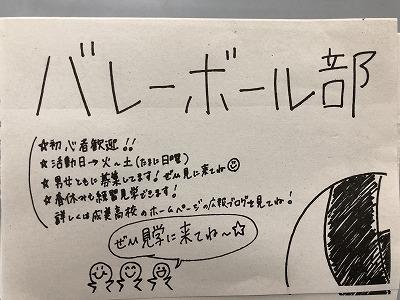 バレーボール部
☆初心者歓迎!!
☆活動日→火〜土(たまに日曜)
☆男女ともに募集してます!ぜひ見に来てね☺
☆春休みも練習見学できます!
詳しくは成美高校のホームページの広報ブログを見てね!
ぜひ見学に来てね〜☆